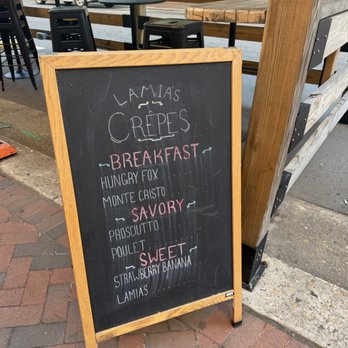 LAMIA'S
CRÊPES
BREAKFAST
HUNGRY FOX
MONTE CRISTO
SAVORY
PROSCIUTTO
POULET
SWEET
STRAWBERRY BANANA
LAMIA'S